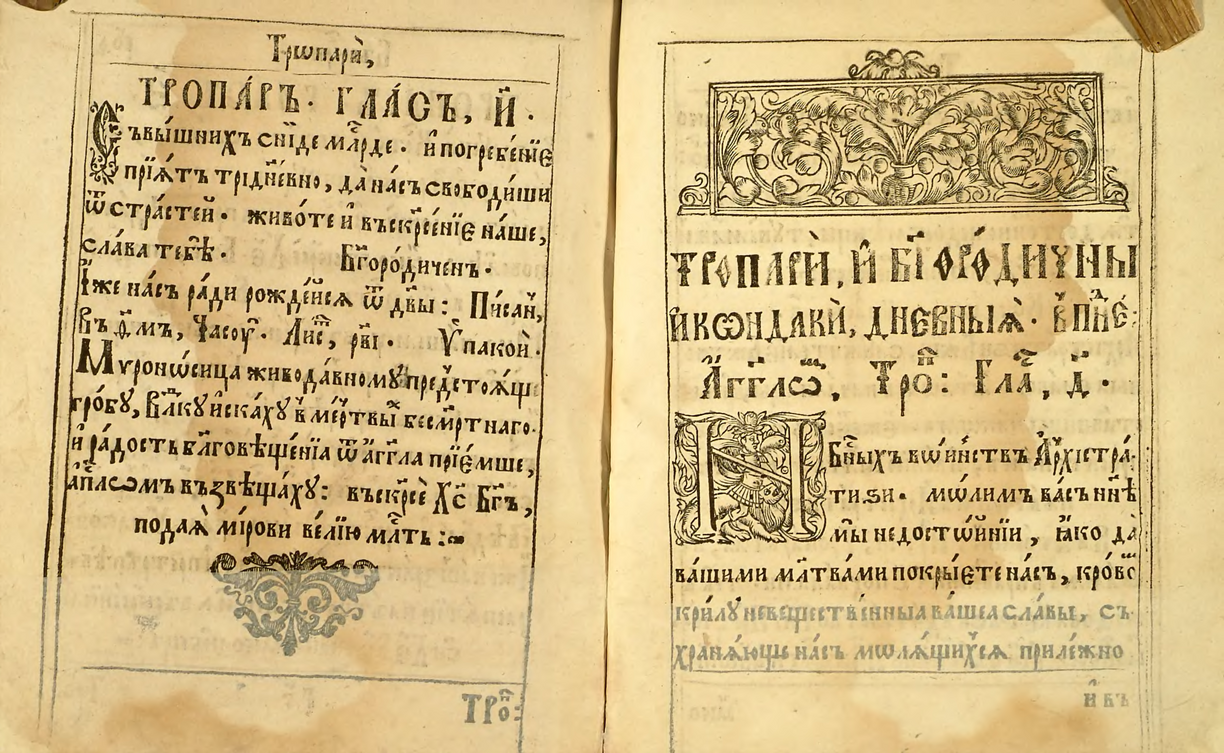 Трѡпарѝ,
ТРОПА́РЪ. ГЛА́СЪ, И҃.
Съвы́шнихъ сни́де млⷭ҇рде. и҆ погребе́нїе
прїѧ́тъ триднⷩ҇евно, да на́съ свободи́ши
ѿ стра́стей. живо́те и҆ въскрⷭ҇е́нїе на́ше,
сла́ва тебѣ̀. Бг҃оро́диченъ.
И҆́же на́съ ра́ди рожде́йсѧ ѿ дв҃ы: Писан̾,
въ Часоу. Лис, рві. Ѵ҆пакоѝ.
Мѵронѡ́сица живода́вному предстоѧ́ще
гро́бу, влⷣку и҆ска́ху в ме́ртвыⷯ бесме́ртнаго.
и҆ ра́дость бл҃говѣще́нїа ѿ а҆́гг҃ла прїе́мше,
а҆пⷭ҇лѡмъ възвѣща́ху: въскрⷭ҇е Хс҃ Бг҃ъ,
подаѧ̀ ми́рови ве́лїю млⷭ҇ть:
ТРОⷫ:
ТРОПАРЍ, И҆ БГ҃ОРО́ДИЧНЫ
И҆ КѠНДАКЍ, ДНЕВНЫѦ̀. В̾ ПНⷣЕ:
А҆́ГГ҃ЛѠⷨ, ТРОⷫ: ГЛАⷭ, Д҃.
Нб҃ныхъ вѡ́инствъ А҆рхїстра́-
ти.зи. мѡ́лимъ ва́съ нн҃ѣ
мы̀ недостѡ́йнїи, ꙗ҆́ко да̀
ва́шими мл҃твами покры́ете на́съ, кро́вѡⷨ
кри́лу невеще́ственныа ва́шеа сла́вы, съ-
хранѧ́юще на́съ мѡлѧ́щихсѧ приле́жно
и҆ въ